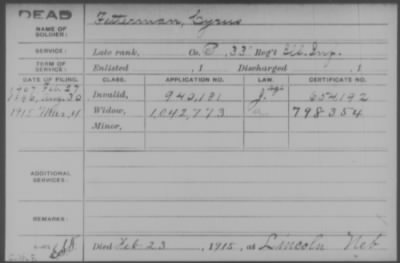 DEAD
NAME OF SOLDIER: Fetterman, Cyrus
SERVICE: Late rank, Co. , 33 Reg't Ill. Inf.
TERM OF SERVICE: Enlisted , 1 Discharged , 1
DATE OF FILING. CLASS. APPLICATION NO. LAW. CERTIFICATE NO.
Feb 27
Aug. 30 Invalid, 940,181 654,192
1915 Mar, 4 Widow, 1,042,773 a. 798354
Minor,
ADDITIONAL SERVICES:
REMARKS:
Died Feb 23 , 1915, at Lincoln Neb